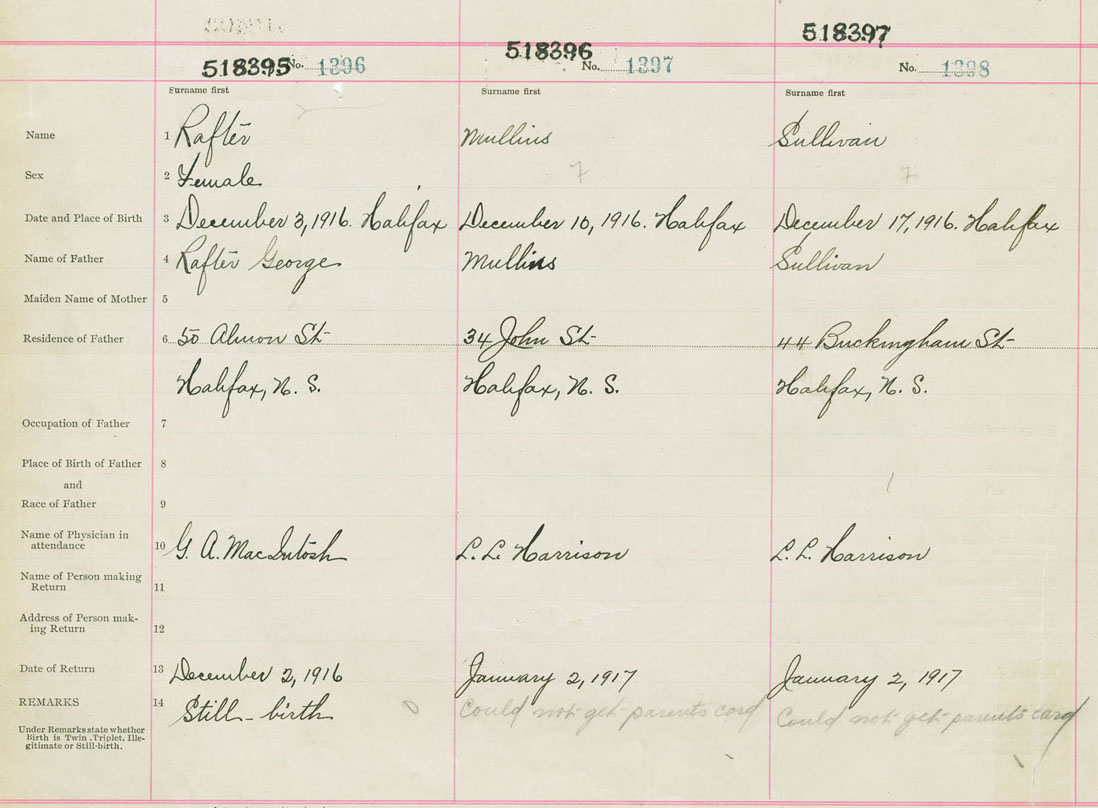 518395 No. 1396
518396 No. 1397
518397 No. 1398
Surname first Surname first Surname first
Name 1 Rafter Mullins Sullivan
Sex 2 Female ? ?
Date and Place of Birth 3 December 3, 1916. Halifax December 10, 1916. Halifax December 17, 1916. Halifax
Name of Father 4 Rafter George Mullins Sullivan
Maiden Name of Mother 5
Residence of Father 6 50 Almon St- 34 John St- 44 Buckingham St-
Halifax, N. S. Halifax, N. S. Halifax, N. S.
Occupation of Father 7
Place of Birth of Father 8
and
Race of Father 9
Name of Physician in
attendance 10 G. A. MacIntosh L. L. Harrison L. L. Harrison
Name of Person making
Return 11
Address of Person mak-
ing Return 12
Date of Return 13 December 2, 1916 January 2, 1917 January 2, 1917
REMARKS 14 Still-birth Could not get parents card Could not get parents card
Under Remarks state whether
Birth is Twin, Triplet, Ille-
gitimate or Still-birth.